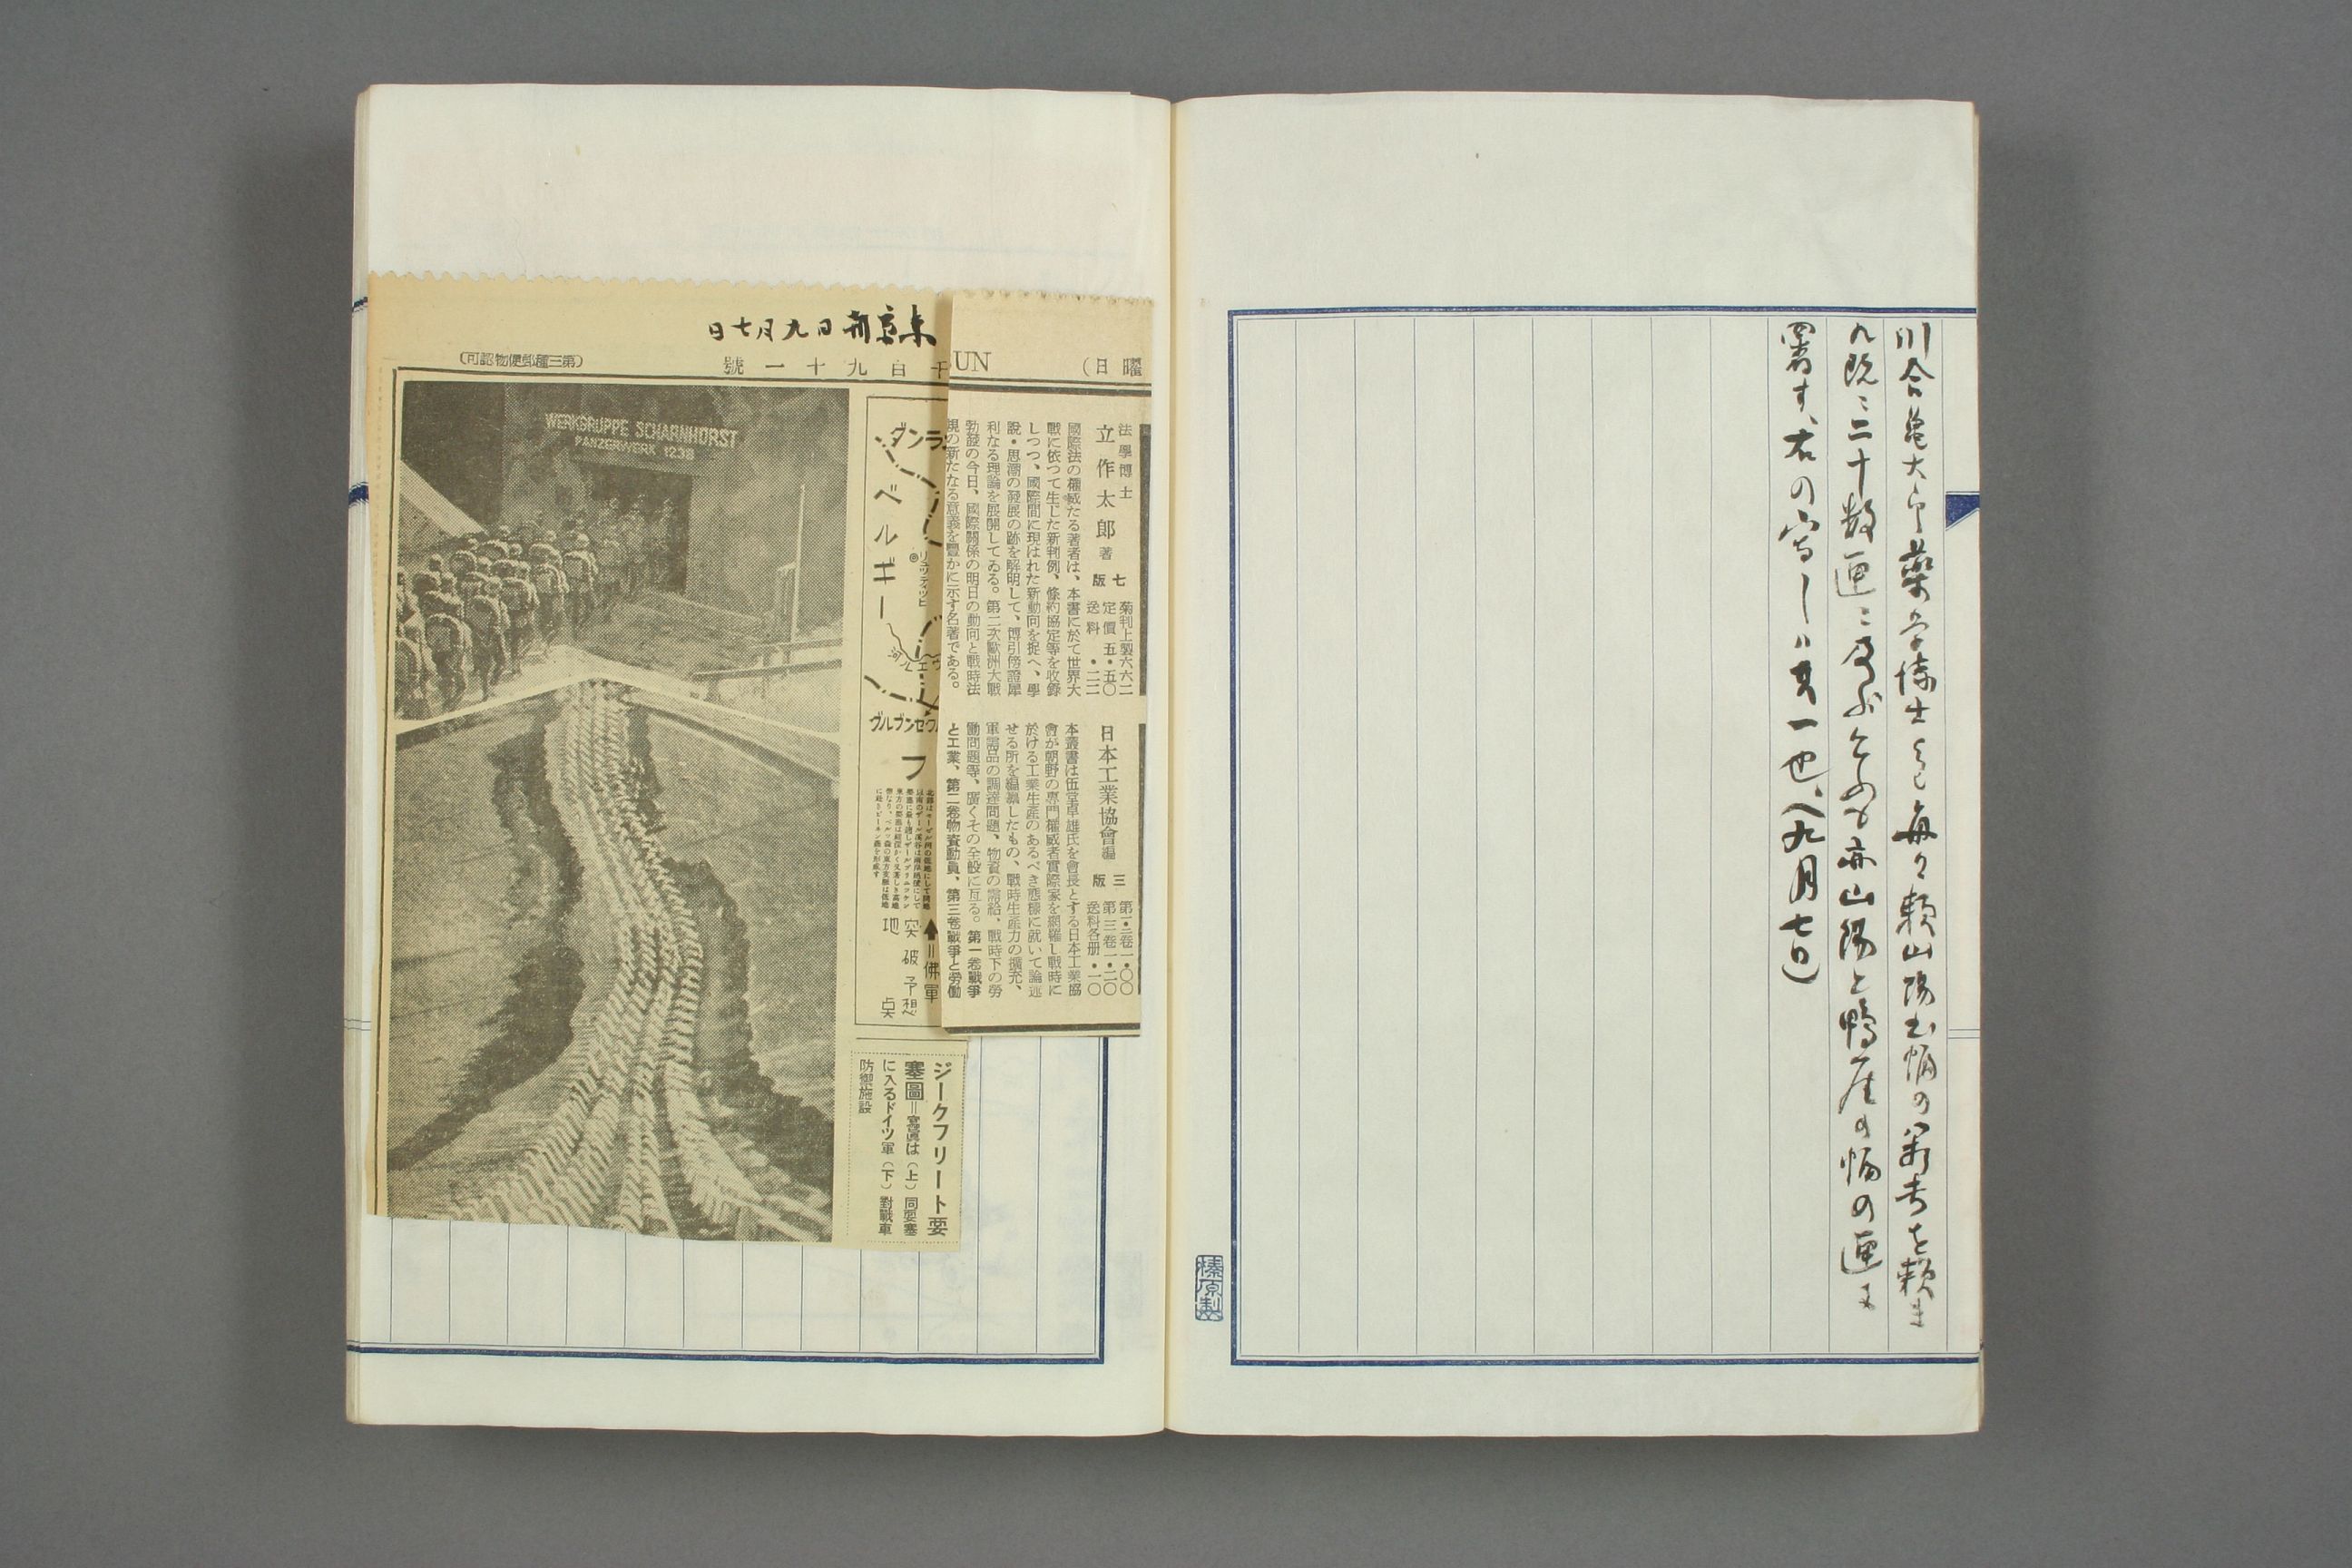 川合亀太郎薬学博士より毎々頼山陽書幅の箱書を頼ま
れ既ニ二十数函ニ及ぶ今日も亦山陽と鴨厓の幅の函に
署す、右の寫しハ其一也、(九月七日)
榛原製
東京朝日九月七日
(第三種郵便物認可)
千百九十一號
SUN
(日曜
WERKGRUPPE SCHARNHORST
PANZERWERK 1238
ベルギー
ヴエル河
フ
↑=佛軍
突破予想
地点
ジークフリート要
塞圖=寫眞は(上)同要塞
に入るドイツ軍(下)對戰車
防禦施設
法學博士
立作太郎著
七版
菊判上製六六二
定價五・五〇
送料・二二
國際法の權威たる著者は、本書に於て世界大
戰に依つて生じた新判例、條約協定等を收錄
しつつ、國際間に現はれた新動向を捉へ、學
說・思潮の發展の跡を解明して、博引傍證犀
利なる理論を展開してゐる。第二次歐洲大戰
勃發の今日、國際關係の明日の動向と戰時法
規の新たなる意義を豐かに示す名著である。
日本工業協會編
三版
第一・二卷一・〇〇
第三卷一・二〇
送料各册・一〇
本叢書は伍堂卓雄氏を會長とする日本工業協
會が朝野の專門權威者實際家を網羅し戰時に
於ける工業生產のあるべき態樣に就いて論述
せる所を編纂したもの、戰時生產力の擴充、
軍需品の調達問題、物資の需給、戰時下の勞
働問題等、廣くその全般に亙る。第一卷戰爭
と工業、第二卷物資動員、第三卷戰爭と勞働